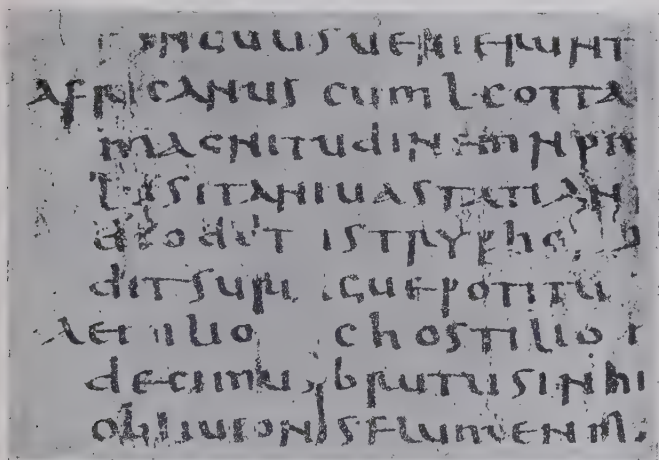 INGUUIS UENIERUNT
AFRICANUS CUM L COTTA
MAGNITUDINEM N PR
LUSITANI UASTATI AN
DIODOT ISTRYPHO A
DIT SURI QUE POTITU
AEMILIO C HOSTILIO
DECIMUS BRUTUI SIN HI
OBLIUIONIS FLUMEN M